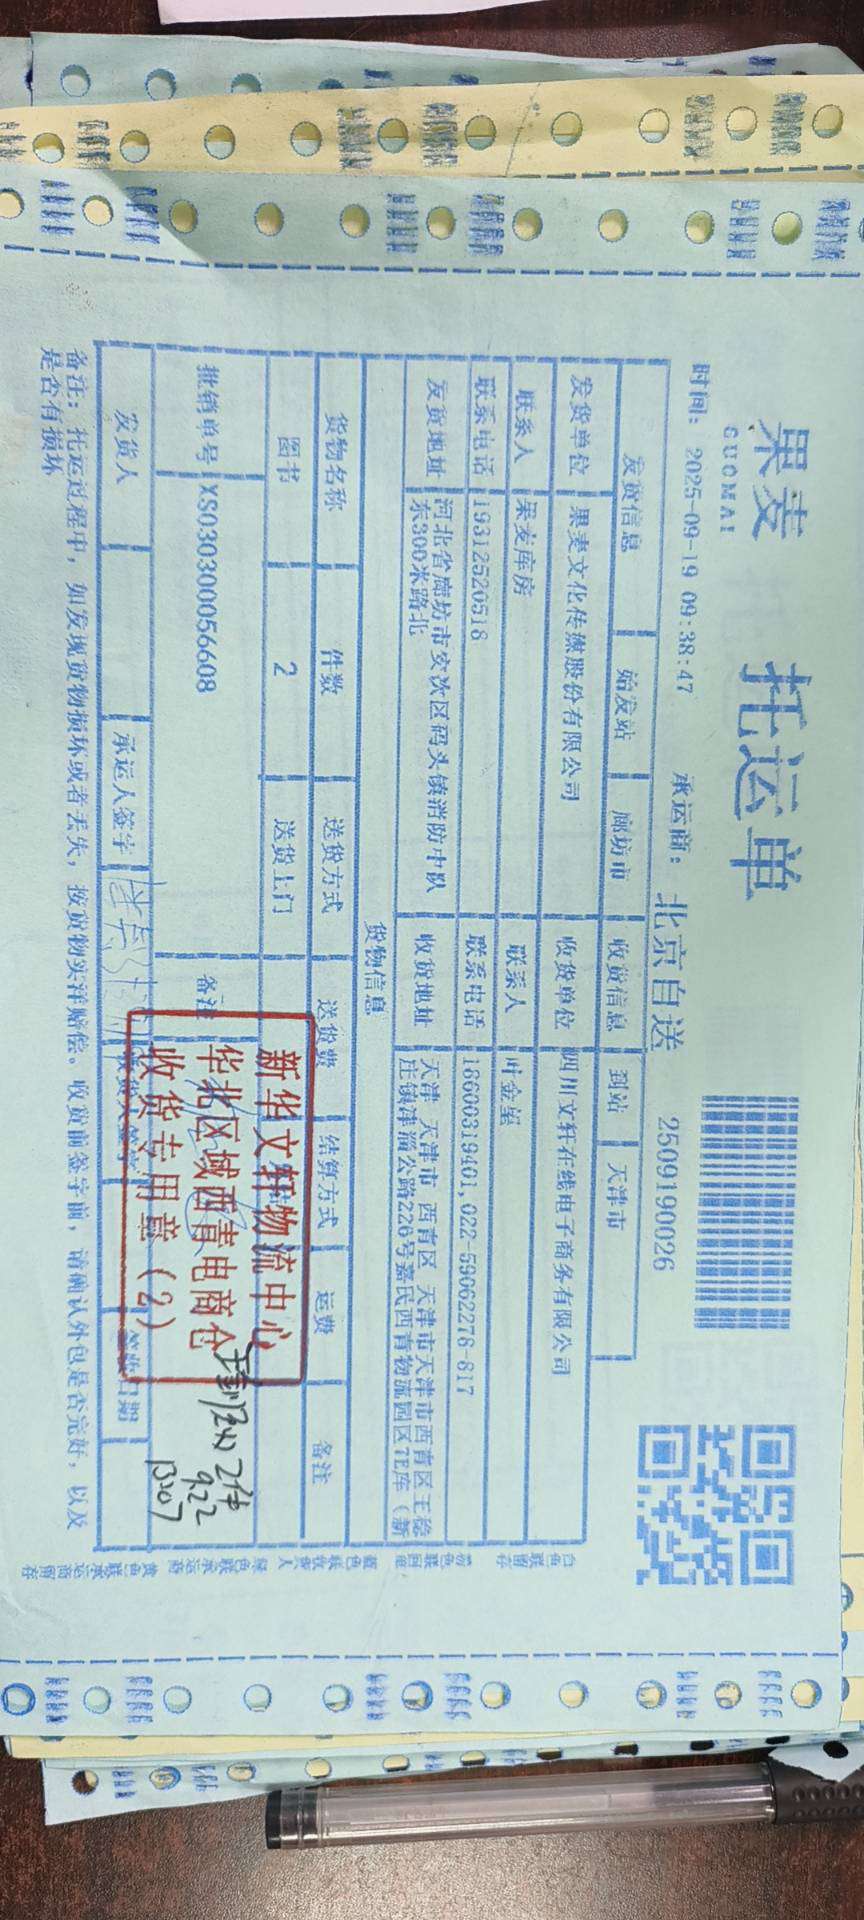 果麦
GUOMAI
托运单
时间: 2025-09-19 09:38:47 承运商: 北京自送 2509190026
发货信息 始发站 廊坊市 收货信息 到站 天津市
发货单位 果麦文化传媒股份有限公司 收货单位 四川文轩在线电子商务有限公司
联系人 果麦库房 联系人
联系电话 19312520518 联系电话 18600319401,022-59062278-817
发货地址 河北省廊坊市安次区码头镇消防中队东300米路北 收货地址 天津 天津市 西青区 天津市天津市西青区王稳庄镇津淄公路226号嘉民西青物流园区7E库（新
货物信息
货物名称 件数 送货方式 送货费 结算方式 运费 备注
图书 2 送货上门
批销单号 XS030300056608 备注
新华文轩物流中心
华北区域西青电商仓
收货专用章（2）
2件
9.22
发货人 承运人签字 收货人签字 签收日期
备注: 托运过程中, 如发现货物损坏或者丢失, 按货物实洋赔偿。收货前签字前, 请确认外包是否完好, 以及
是否有损坏
白色联留存 粉色联回单 蓝色联收货人 绿色联承运商 黄色联承运商留存